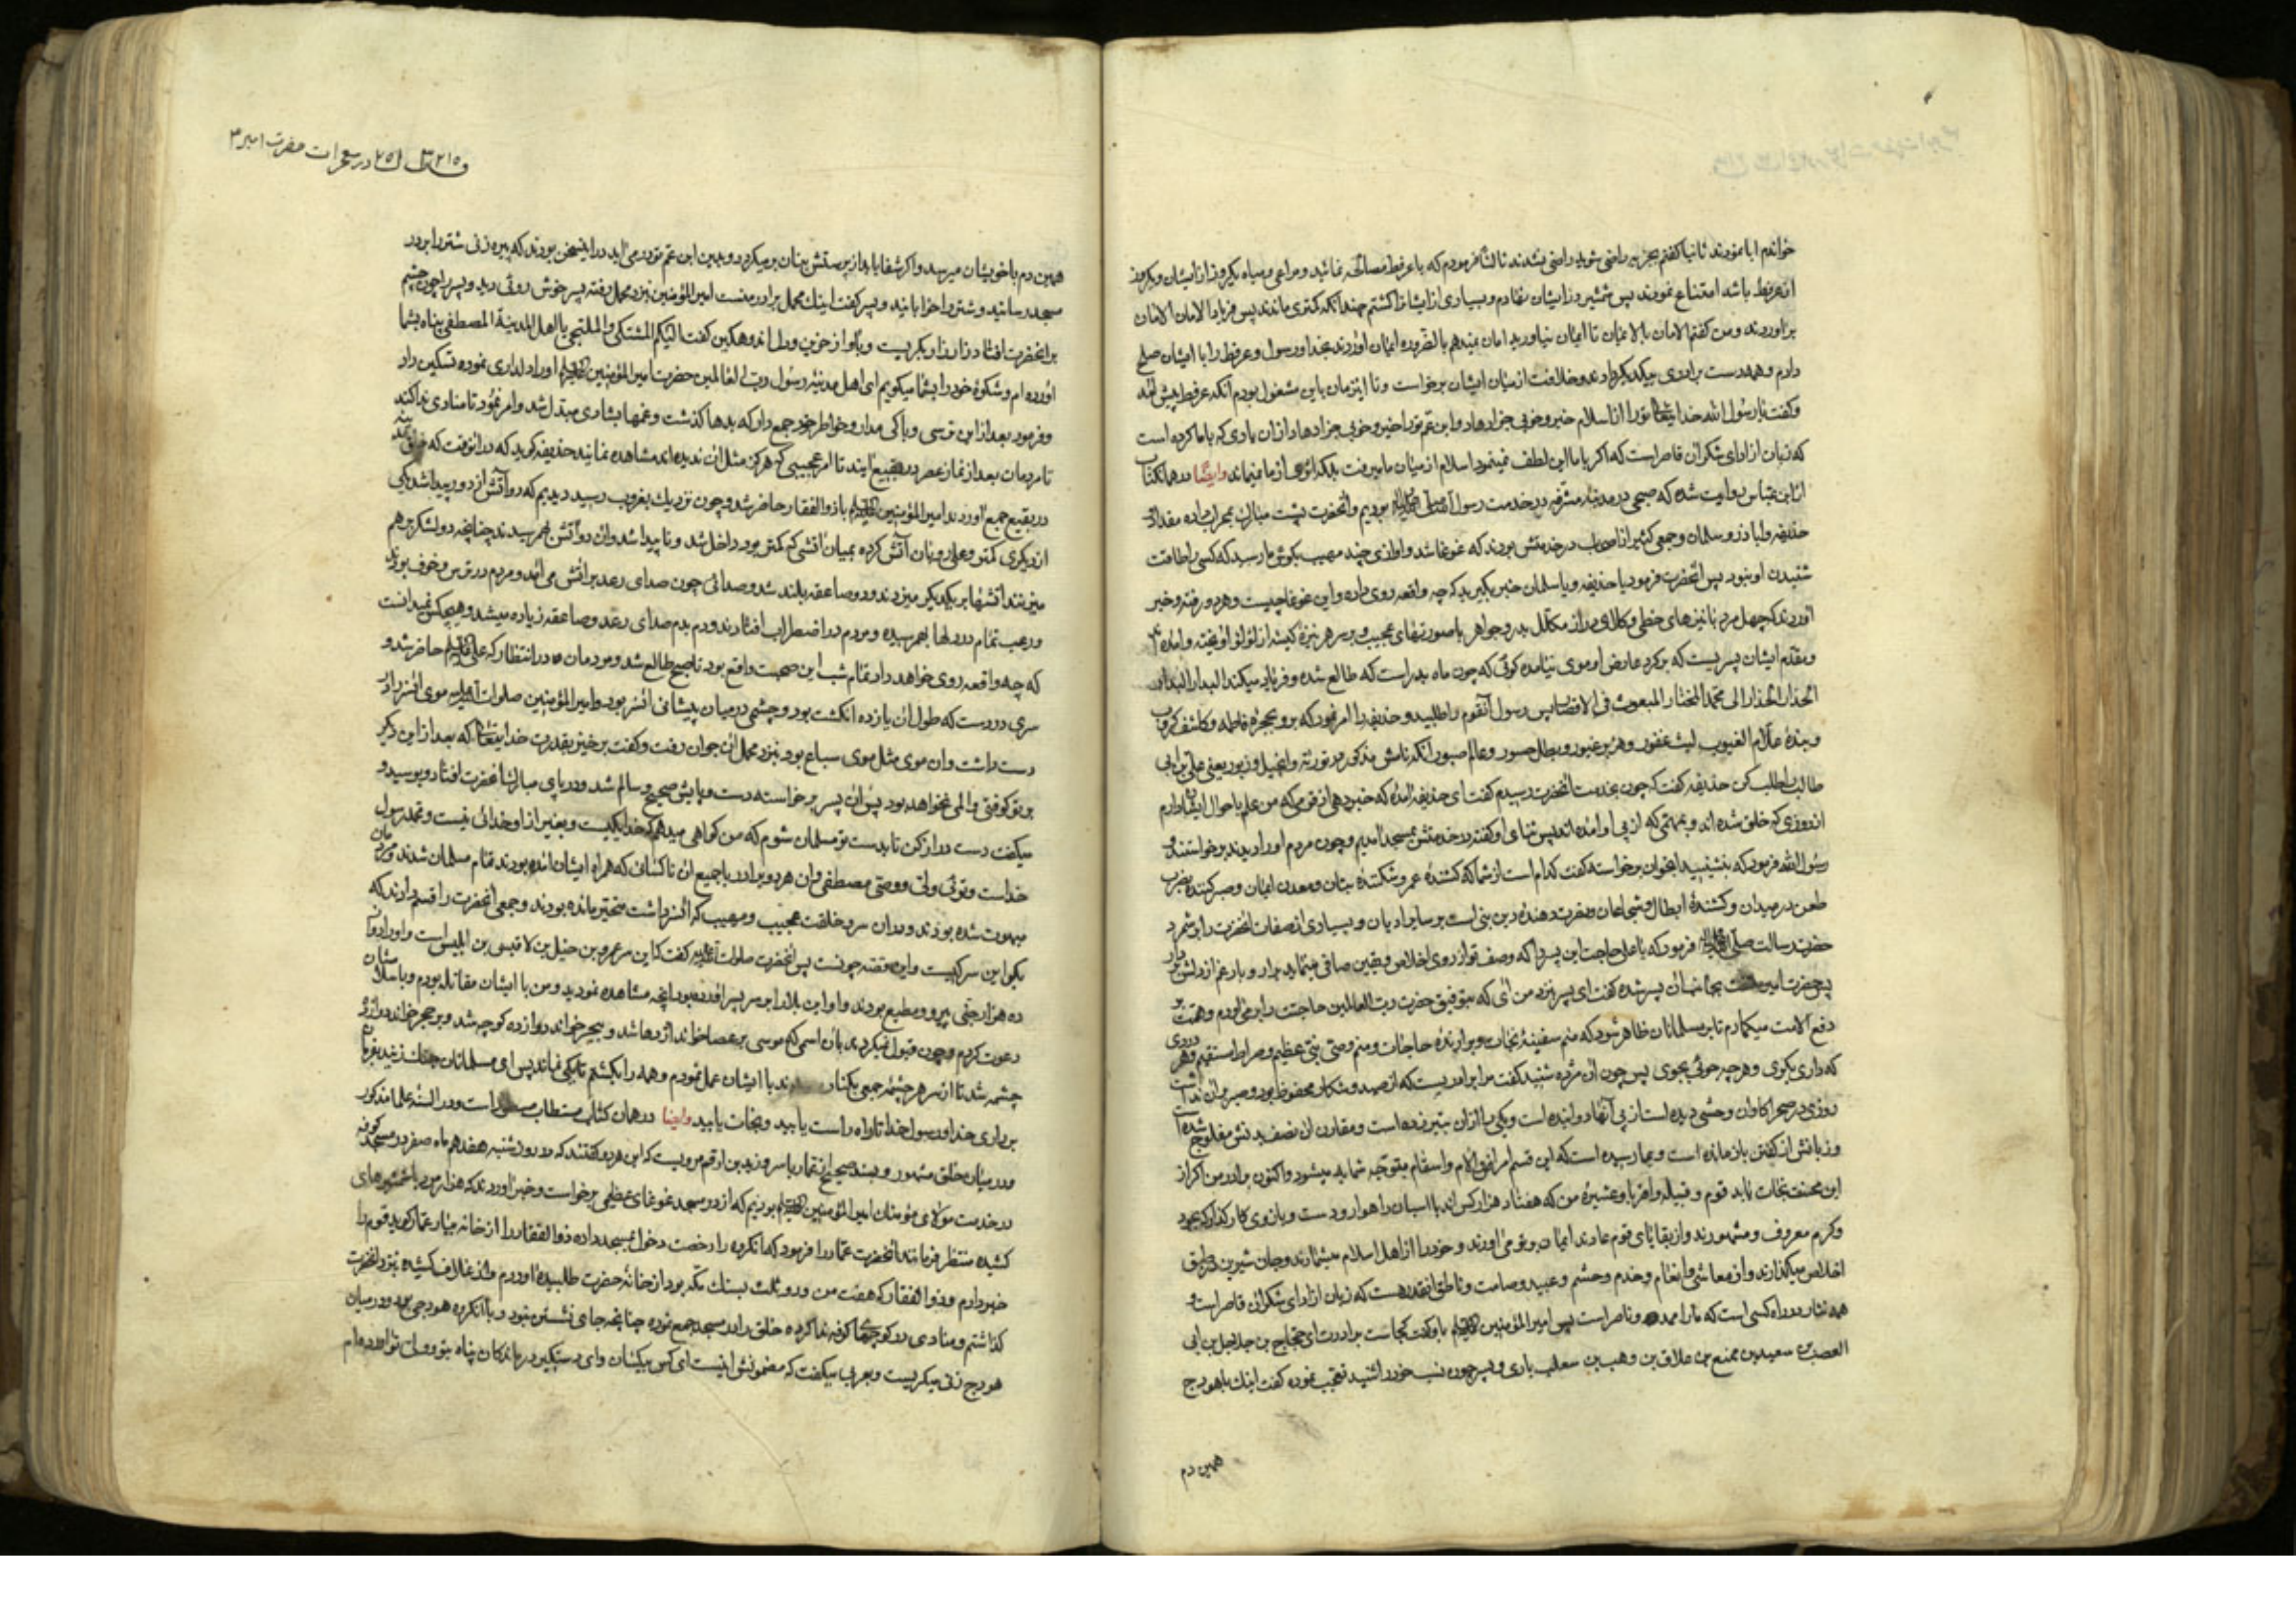 خواندم ابا نمودند ثانیا گفتم بجزیه راضی شوید راضی نشدند ثالثا فرمودم که با عرفطه مصالحه نمائید و مراعی و میاه یکروز از ایشان و یکروز
از عرفطه باشد امتناع نمودند پس شمشیر در ایشان نهادم و بسیاری از ایشانرا کشتم چندانکه کمتری ماندند پس فریاد الامان الامان
براوردند و من گفتم لا امان الا بالایمان تا ایمان نیاورید امان نمیدهم بالضروره ایمان اوردند بخدا و رسول و عرفطه را با ایشان صلح
دادم و همه دست برادری بیکدیگر دادند و خلافت از میان ایشان برخواست و تا اینزمان باین مشغول بودم آنکه عرفطه پیش امد
و گفت یا رسول الله خدایتعالی تو را از اسلام خیر و خوبی جزا دهاد و ابن عم تو را خیر و خوبی جزا دهاد از ان یاری که با ما کرده است
که زبان از ادای شکر ان قاصر است که اگر با ما این لطف نمینمود اسلام از میان ما میرفت بلکه اثری از ما نمیماند وایضا در همان کتاب
از ابن عباس روایت شده که صبحی در مدینه مشرفه در خدمت رسول الله بودیم و انحضرت پشت مبارک بمحراب داده مقداد و
حذیفه و اباذر و سلمان و جمعی کثیر از اصحاب در خدمتش بودند که غوغا شد و اوازی چند مهیب بگوش ما رسید که کسی را طاقت
شنیدن او نبود پس انحضرت فرمود یا حذیفه و یا سلمان خبر بگیرید که چه واقعه روی داده و این غوغا چیست و هر دو رفته و خبر
اوردند که چهل مرد با نیزهای خطی و کلاه‌ی دراز مکلل بدر و جواهر با صورتهای عجیب و بر سر هر نیزه کیسه از لؤلؤ اویخته و امده
و مقدم ایشان پسریست که بر گرد عارض او موی نیامده گوئی که چون ماه بدر است که طالع شده و فریاد میکند البدار البدار
الحذار الحذار الی محمد المختار المبعوث فی الاقطار پس رسول آنقوم را طلبید و حذیفه را امر نمود که برو بحجره فاطمه و کاشف کروب
و بنده علام الغیوب لیث عفور و هزبر غیور و بطل جسور و عالم صبور آنکه نامش مذکور در توریة و انجیل و زبور یعنی علی بن ابی
طالب را طلب کن حذیفه گفت که چون بخدمت انحضرت رسیدم گفت ای حذیفه امده که خبر دهی از قومی که من علم باحوال ایشان دارم
از روزی که خلق شده اند و بمهمی که از پی او امده اند پس ثنای او گفته در خدمتش بمسجد امدیم و چون مردم او را دیدند برخواستند و
رسول الله فرمود که بنشینید ان جوان برخواسته گفت کدام است از شما که کشنده عمر و شکننده بتان و معدن ایمان و صبر کننده بضرب
طعن در میدان و کشنده ابطال و شجاعان و نصرت دهنده دین بنی است بر سایر ادیان و بسیاری از صفات انحضرت را بر شمرد
حضرت رسالت فرمود که یا علی حاجت این پسر را که وصف تو از روی اخلاص و یقین صافی مینماید برار و بار غم از دلش بردار
پس حضرت امیر بجانب ان پسر شده گفت ای پسر نزد من ائی که بتوفیق حضرت رب العالمین حاجتت را بر می‌اورم و همت بر
دفع الامت میگمارم تا بر مسلمانان ظاهر شود که منم سفینه نجات و برارنده حاجات و منم وصی نبی عظیم و صراط مستقیم و هر دردی
که داری بگوی و هر چه جوئی بجوی پس چون ان مژده شنید گفت مرا برادریست که از صید و شکار محفوظ بود و صبر بر ان نداشت
روزی در صحرا گاوان وحشی دیده است از پی آنها دوانیده است و یکی را از ان بتیر زده است و مقارن ان نصف بدنش مفلوج شده
و زبانش از گفتن بازمانده است و بما رسیده است که این قسم امراض و الام و اسقام بتوجه شما بد میشود و اکنون برادر من اگر از
این محنت نجات یابد قوم و قبیله و اقربا و عشیره من که هفتاد هزار کس اند با اسبان راهوار و دست و بازوی کارگذار که بجود
و کرم معروف و مشهورند و از بقایای قوم عادند ایمان بتو می اورند و خود را از اهل اسلام میشمارند و جان شیرین در طریق
اخلاص میگذارند و از معاشی و انعام و خدم و حشم و عبید و صامت و ناطق انقدر هست که زبان از ادای شکر ان قاصر است و
همه نثار در راه کسی است که ما را ممد و ناصر است پس امیر المؤمنین باو گفت کجاست برادرت ای حجاج بن جلاجل بن ابی
العصب بن سعید بن ممنع بن علاق بن وهب بن سعلب باری و پسر چون نسب خود را شنید تعجب نموده گفت اینک با هودج
همین دم
در معجزات حضرت امیر
همین دم با خویشان میرسد و اگر شفا یابد از پرستش بتان بر میگردد و بدین ابن عم تو در می اید در این سخن بودند که پیره زنی شتر را بر در
مسجد رسانید و شتر را خوابانید و پسر گفت اینک محمل برادر منست امیر المؤمنین نزد محمل رفته پسر خوش روئی دید و پسر را چون چشم
بر انحضرت افتاد زار زار بگریست و باواز حزین و دل اندوهگین گفت الیکم المشتکی و الملتجی یا اهل المدینة المصطفی پناه بشما
اورده ام و شکوه خود را بشما میگویم ای اهل مدینه رسول رب العالمین حضرت امیر المؤمنین او را دلداری نموده تسکین داد
و فرمود بعد از این نترسی و باکی مدار و خواطر خود جمع دار که بدها گذشت و غمها بشادی مبدل شد و امر نمود تا منادی ندا کند
تا مردمان بعد از نماز عصر در بقیع ایند تا امر عجیبی که هرگز مثل ان ندیده اند مشاهده نمایند حذیفه گوید که در انوقت که
در بقیع جمع اوردند امیر المؤمنین با ذوالفقار حاضر شد و چون نزدیک بغروب رسید دیدیم که دو آتش از دور پیدا شد یکی
از دیگری کمتر و علی رو بان آتش کرده بمیان اتشی که کمتر بود داخل شد و ناپیدا شد و ان دو آتش بهم رسیدند چنانچه دو لشکر بر هم
میزنند اتشها بر یکدیگر میزدند و رعد و صاعقه بلند شد و صدائی چون صدای رعد بر اتش می امد و مردم در ترس و خوف بودند
و رعب تمام در دلها بهم رسیده و مردم در اضطراب افتادند و دم بدم صدای رعد و صاعقه زیاده میشد و هیچکس نمیدانست
که چه واقعه روی خواهد داد تمام شب این صحبت واقع بود تا صبح طالع شد و مردمان در انتظار که علی حاضر شد و
سری در دست که طول ان یازده انگشت بود و چشمی در میان پیشانی انسر بود و امیر المؤمنین صلوات الله علیه موی انسر را در
دست داشت و ان موی مثل موی سباع بود نزد محمل ان جوان رفت و گفت برخیز بقدرت خدایتعالی که بعد از این دیگر
بر تو کوفتی و المی نخواهد بود پس ان پسر برخواسته دست و پایش صحیح و سالم شد و در پای مبارک انحضرت افتاد و بوسید و
میگفت دست دراز کن تا بدست تو مسلمان شوم که من گواهی میدهم که خدا یکیست و بغیر از او خدائی نیست و محمد رسول
خداست و توئی ولی و وصی مصطفی و ان هر دو برادر با جمیع ان ناکسان که همراه ایشان امده بودند تمام مسلمان شدند و مردمان
مبهوت شده بودند و در ان سر و خلقت عجیب و مهیب که انسر داشت متحیر مانده بودند و جمعی انحضرت را قسم دادند که
بگو این سر کیست و این قصه چونست پس انحضرت صلوات الله علیه گفت که این سر عمرو بن حنبل بن لاقیس بن ابلیس است و او را دوازده
ده هزار جنی پیرو و مطیع بودند و او این بلا را بر سر پسر اورده بود انچه مشاهده نمودید و من با ایشان مقاتله بودم و باسلام ایشان
دعوت کردم و چون قبول نمیکردند بان اسمی که موسی بر عصا خواند اژدها شد و ببحر خواند دوازده کوچه شد و بر حجر خواند دوازده
چشمه شد تا از سر هر چشمه جمعی بکنار با ایشان عمل نمودم و همه را بکشتم تا یکی نماند پس ای مسلمانان چنگ زنید بفرمان
برداری خدا و رسول خدا تا راه راست یابید و نجات یابید وایضا در همان کتاب مستطاب مسطور است و در السنه علما مذکور
و در میان خلق مشهور و بسند صحیح از عمار یاسر و زید بن ارقم مرویست که این هر دو گفتند که در روز شنبه هفدهم ماه صفر در مسجد کوفه
در خدمت مولای مؤمنان امیر المؤمنین بودیم که از در مسجد غوغای عظیمی برخواست و خبر اوردند که هزار مرد با شمشیرهای
کشیده منتظر فرمانند انحضرت عمار را فرمود که انگروه را رخصت دخول بمسجد داده ذوالفقار را از خانه بیار عمار گوید قوم را
خبر دادم و ذوالفقار که هفت من و دو ثلث بسنگ مکه بود از خانه حضرت طلبیده اوردم و از غلاف کشیده نزد انحضرت
گذاشتم و منادی در کوچهای کوفه ندا کرده خلق را در مسجد جمع نموده چنانچه جای نشستن نبود و با انگروه هودجی بود و در میان
هودج زنی میگریست و بعربی میگفت که مضمونش اینست ای کس بیکسان و ای دستگیر درماندگان پناه بتو و ولی تو اورده ام